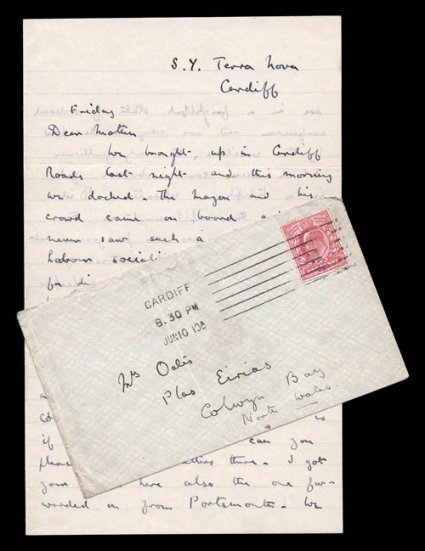 S. Y. Terra Nova
Cardiff
Friday
Dear Mother
We brought up in Cardiff
Roads last night and this morning
we docked. The Mayor and his
crowd came on board
never saw such a
Labour sociali
for di
CARDIFF
8.30 PM
JUN 10 10
Mrs Oates
Plas Eirias
Colwyn Bay
North Wales.
co
if can you
please letters there. I got
your here also the one for-
warded on from Portsmouth. We